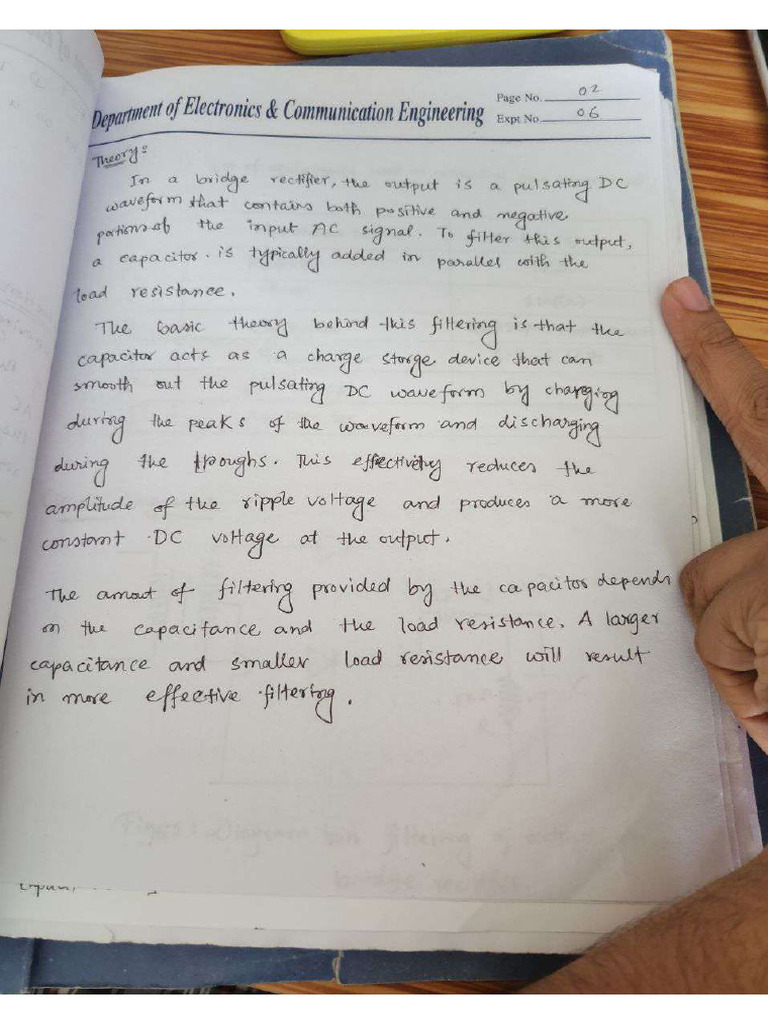 Department of Electronics & Communication Engineering
Page No. 02
Expt No. 06
Theory:
In a bridge rectifier, the output is a pulsating DC
waveform that contains both positive and negative
portions of the input AC signal. To filter this output,
a capacitor. is typically added in parallel with the
load resistance.
The basic theory behind this filtering is that the
capacitor acts as a charge storge device that can
smooth out the pulsating DC waveform by charging
during the peaks of the waveform and discharging
during the troughs. This effectively reduces the
amplitude of the ripple voltage and produces a more
constant DC voltage at the output.
The amout of filtering provided by the capacitor depends
on the capacitance and the load resistance. A larger
capacitance and smaller load resistance will result
in more effective filtering.